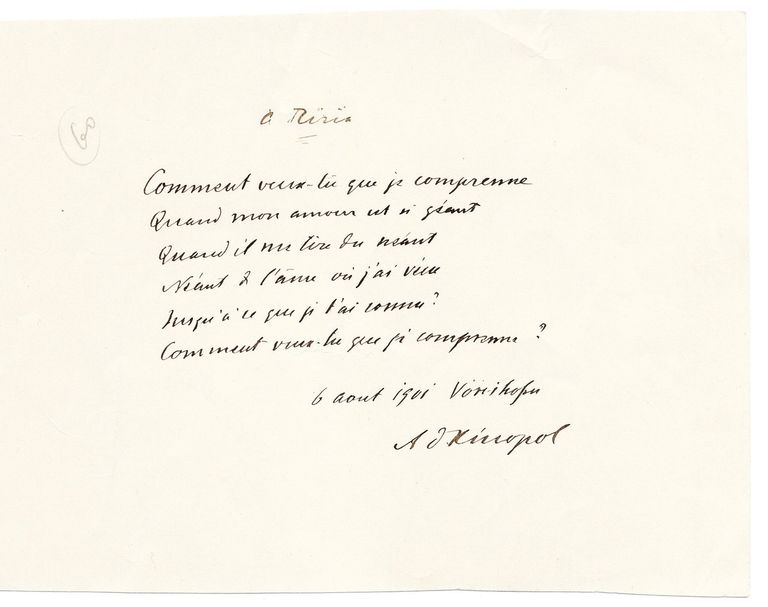 60
à Riria
Comment veux-tu que je comprenne
Quand mon amour est si géant
Quand il me tire du néant
Néant de l'âme où j'ai vécu
Jusqu'à ce que je t'ai connu?
Comment veux-tu que je comprenne?
6 aout 1901 Vörishofen
A D Xénopol